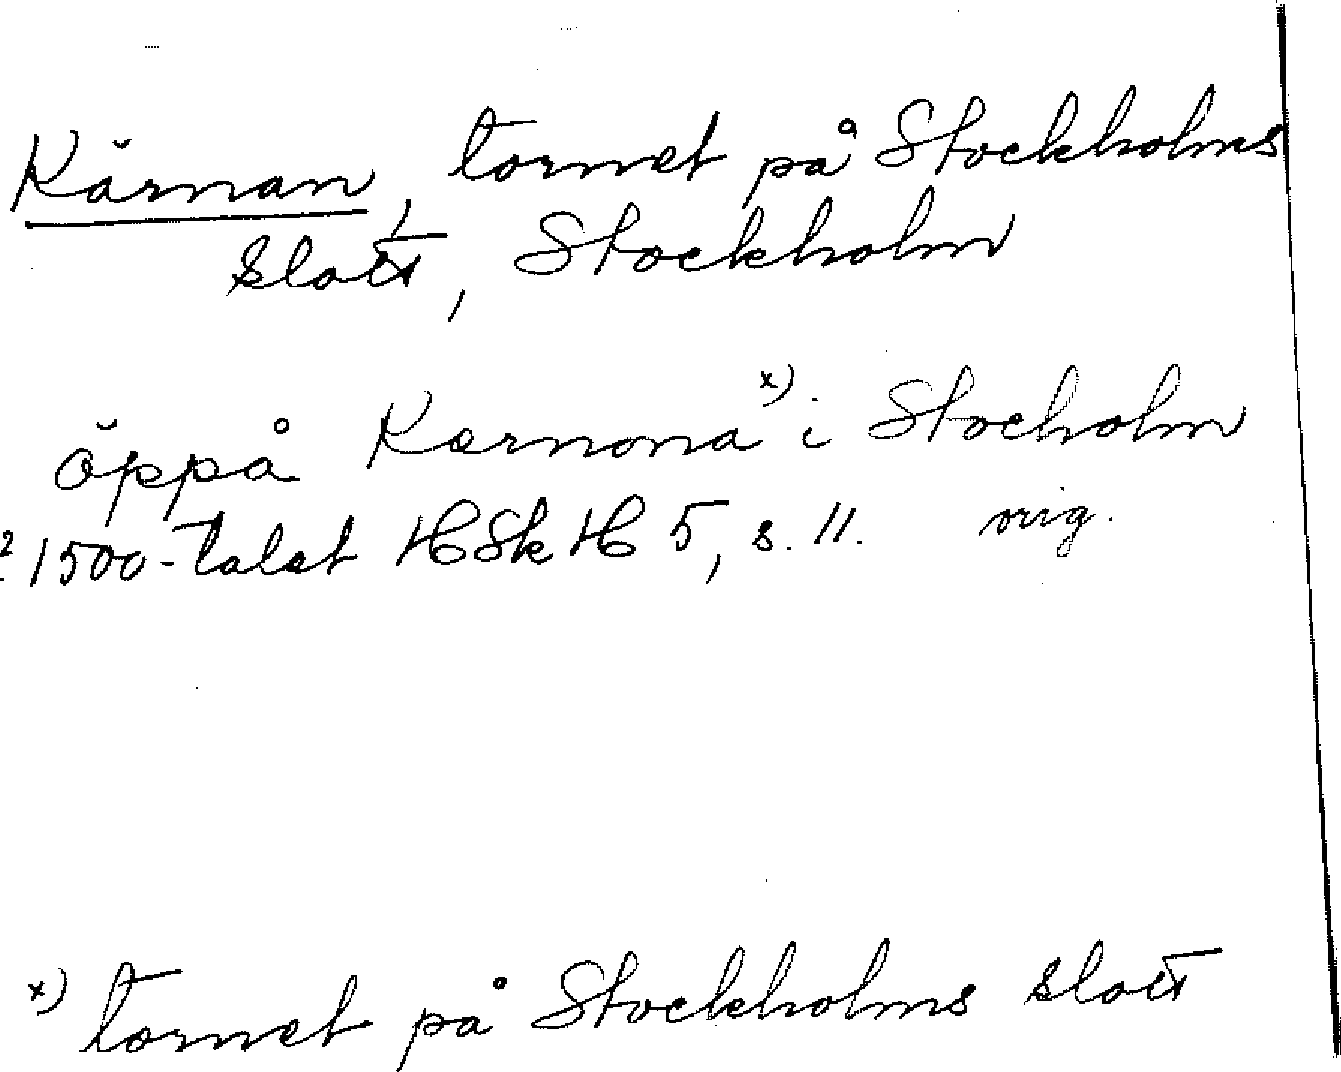 Kärnan, tornet på Stockholms
slott, Stockholm
öppå Kærnona x) i Stocholm
? 1500-talet HSkH 5, s. 11. orig.
x) tornet på Stockholms slott